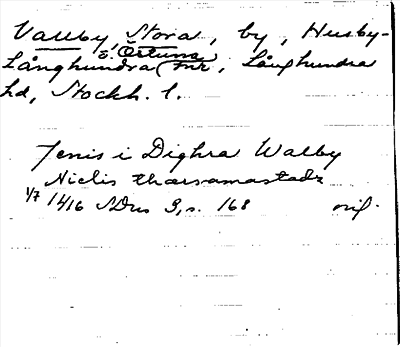 Vallby, Stora, by, Husby-
Långhundra (o. Östuna snr, Långhundra
hd, Stockh. l.
Jenis i Dighra Walby
Niclis thorsamastadz
1/7 1416 SDns 3, s. 168 orig.